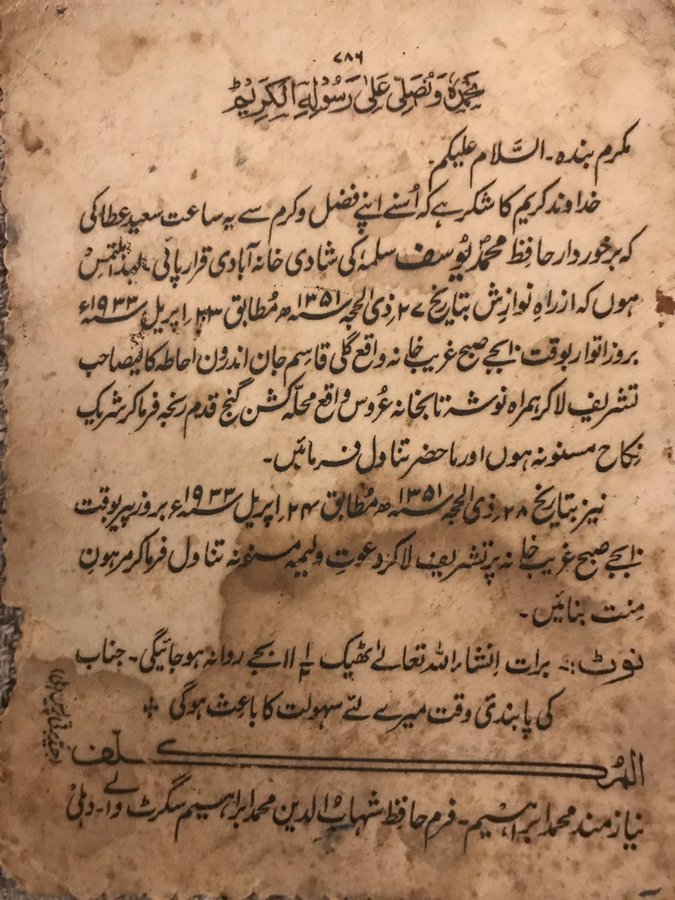 ۷۸۶
نحمدہٗ وَنُصَلِّی عَلیٰ رَسُوْلِہِ الکَرِیْمْ
مکرم بندہ۔ السَّلام علیکم۔
خداوند کریم کا شکر ہے کہ اُسنے اپنے فضل و کرم سے یہ ساعت سعید عطا کی
کہ برخوردار حافظ محمدؐ یوسف سلمہٗ کی شادی خانہ آبادی قرار پائی لہٰذا ملتمس
ہوں کہ از راہِ نوازش بتاریخ ۲۷؍ذی الحجہ ۱۳۵۱ سنہ ھ مُطابق ۲۳؍اپریل ۱۹۳۳ سنہ ء
بروز اتوار بوقت ۱۰ بجے صبح غریب خانہ واقع گلی قاسم جان اندرون احاطہ کالیصاحب
تشریف لاکر ہمراہ نوشہ تا بخانہ عُروس واقع محلہ کشن گنج قدم رنجہ فرماکر شریک
نِکاح مسنونہ ہوں اور ماحضر تناول فرمائیں۔
نیز بتاریخ ۲۸؍ذی الحجہ ۱۳۵۱ سنہ ھ مُطابق ۲۴؍اپریل ۱۹۳۳ سنہ ء بروز پیر بوقت
۱۰ بجے صبح غریب خانہ پر تشریف لاکر دعوتِ ولیمہ مسنونہ تناول فرماکر مرہونِ
مِنت بنائیں۔
نوٹ:۔ برات اِنشاء اللہ تعالےٰ ٹھیک ۱۱ ۱/۲ بجے روانہ ہوجائیگی۔ جناب
کی پابندی وقت میرے لئے سہولت کا باعث ہوگی
المکلف
نیاز مند محمد ابراہیم۔ فرم حافظ شہاب الدین محمد ابراہیم سگرٹ والے۔ دہلی